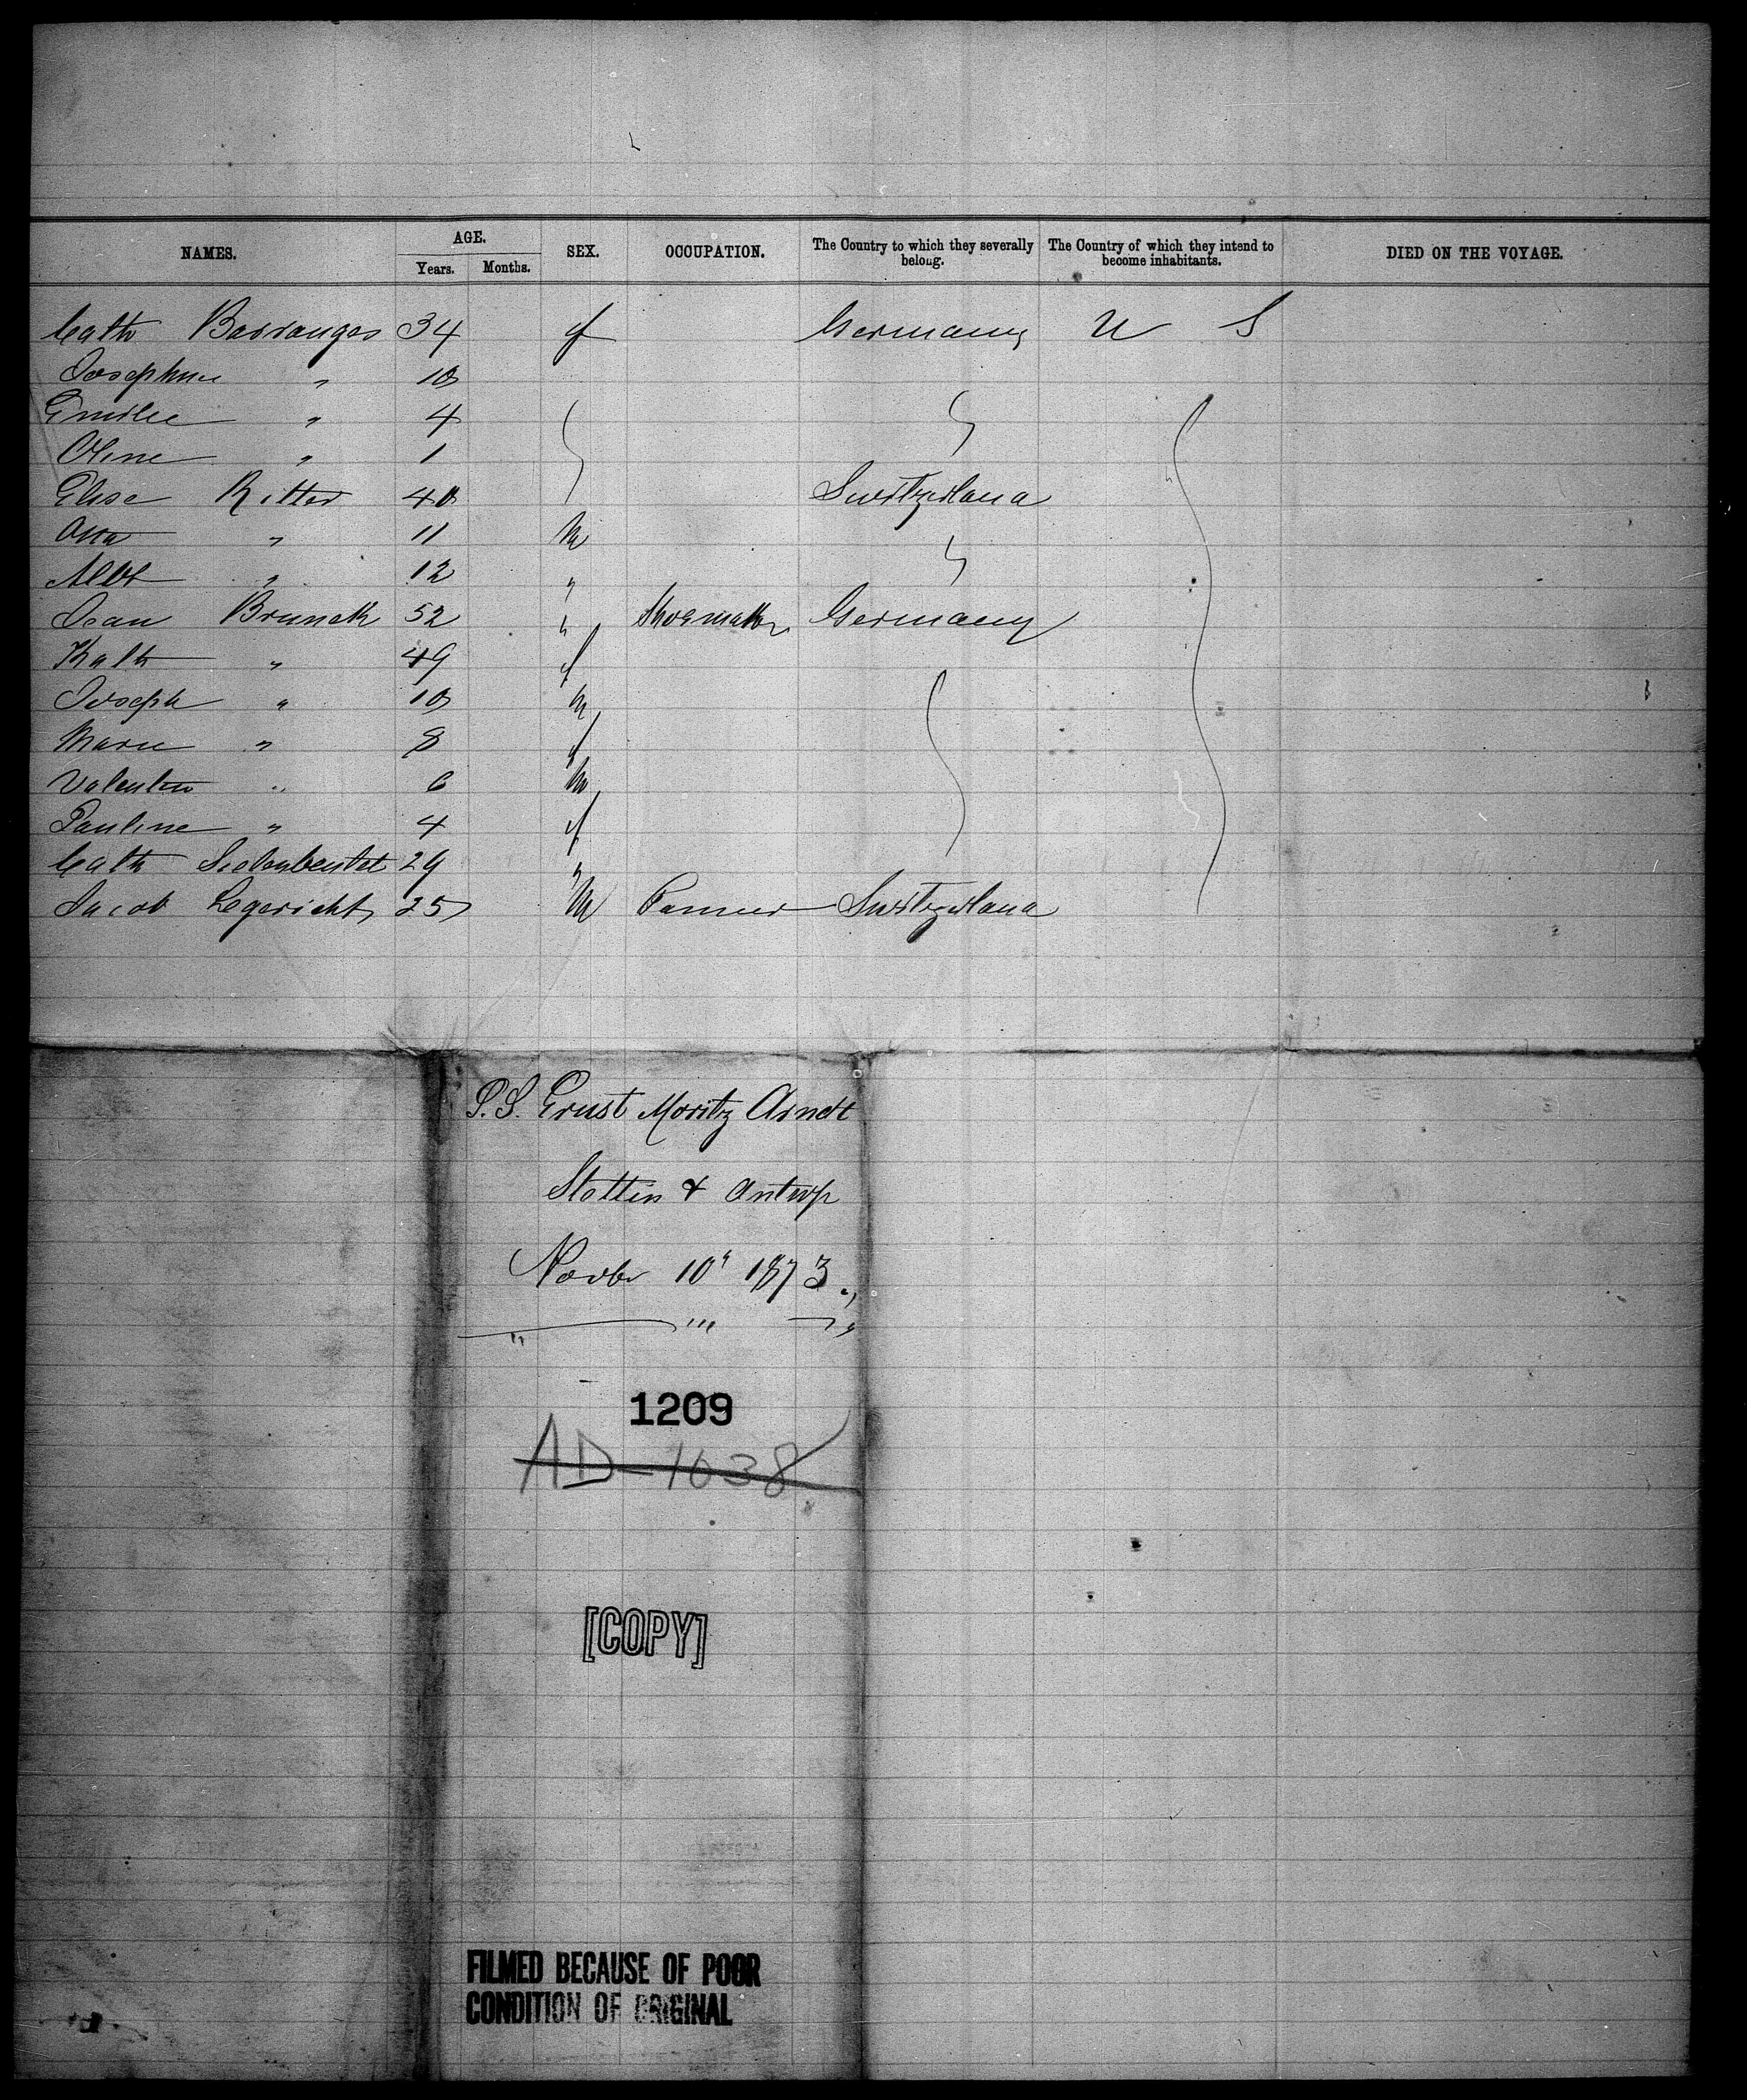 NAMES. AGE. SEX. OCCUPATION. The Country to which they severally belong. The Country of which they intend to become inhabitants. DIED ON THE VOYAGE.
Years. Months.
Cath Barranges 34 f Germany U S
Josephine " 10
Emilie " 4
Oline " 1
Elise Ritter 40 Switzerland
Otto " 11 M
Albt " 12 "
Jean Brunck 52 " Shoemaker Germany
Kath " 49 f
Joseph " 10 M
Marie " 8 f
Valentin " 6 M
Pauline " 4 f
Cath 29 "
Jacob Legericht 25 M Farmer Switzerland
S.S. Ernst Moritz Arndt
Stettin & Antwp
Novbr 10" 1873.
1209
AD-1038
[COPY]
FILMED BECAUSE OF POOR
CONDITION OF ORIGINAL